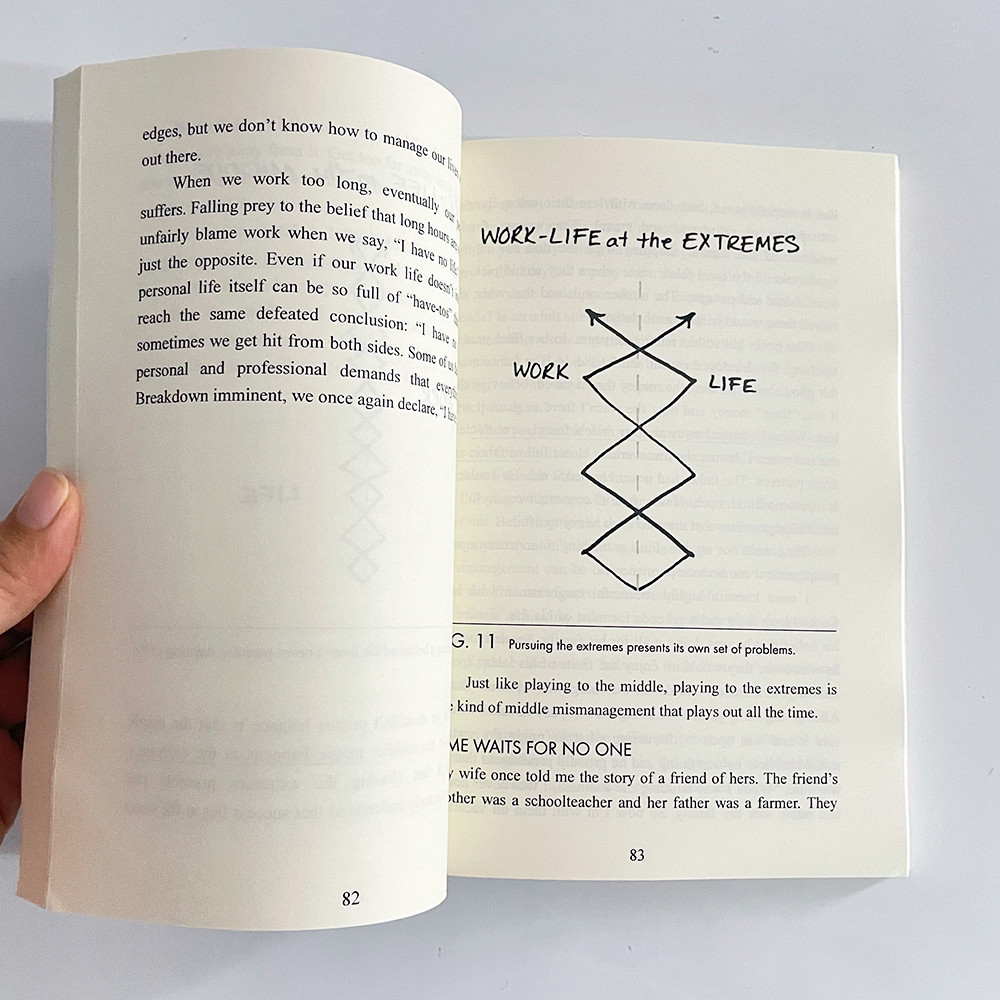 edges, but we don't know how to manage our lives
out there.
When we work too long, eventually our
suffers. Falling prey to the belief that long hours are
unfairly blame work when we say, “I have no life
just the opposite. Even if our work life doesn't
personal life itself can be so full of “have-tos”
reach the same defeated conclusion: “I have no
sometimes we get hit from both sides. Some of us
personal and professional demands that everyth
Breakdown imminent, we once again declare, “I hav
82
WORK-LIFE at the EXTREMES
WORK
LIFE
G. 11 Pursuing the extremes presents its own set of problems.
Just like playing to the middle, playing to the extremes is
kind of middle mismanagement that plays out all the time.
ME WAITS FOR NO ONE
y wife once told me the story of a friend of hers. The friend's
other was a schoolteacher and her father was a farmer. They
83